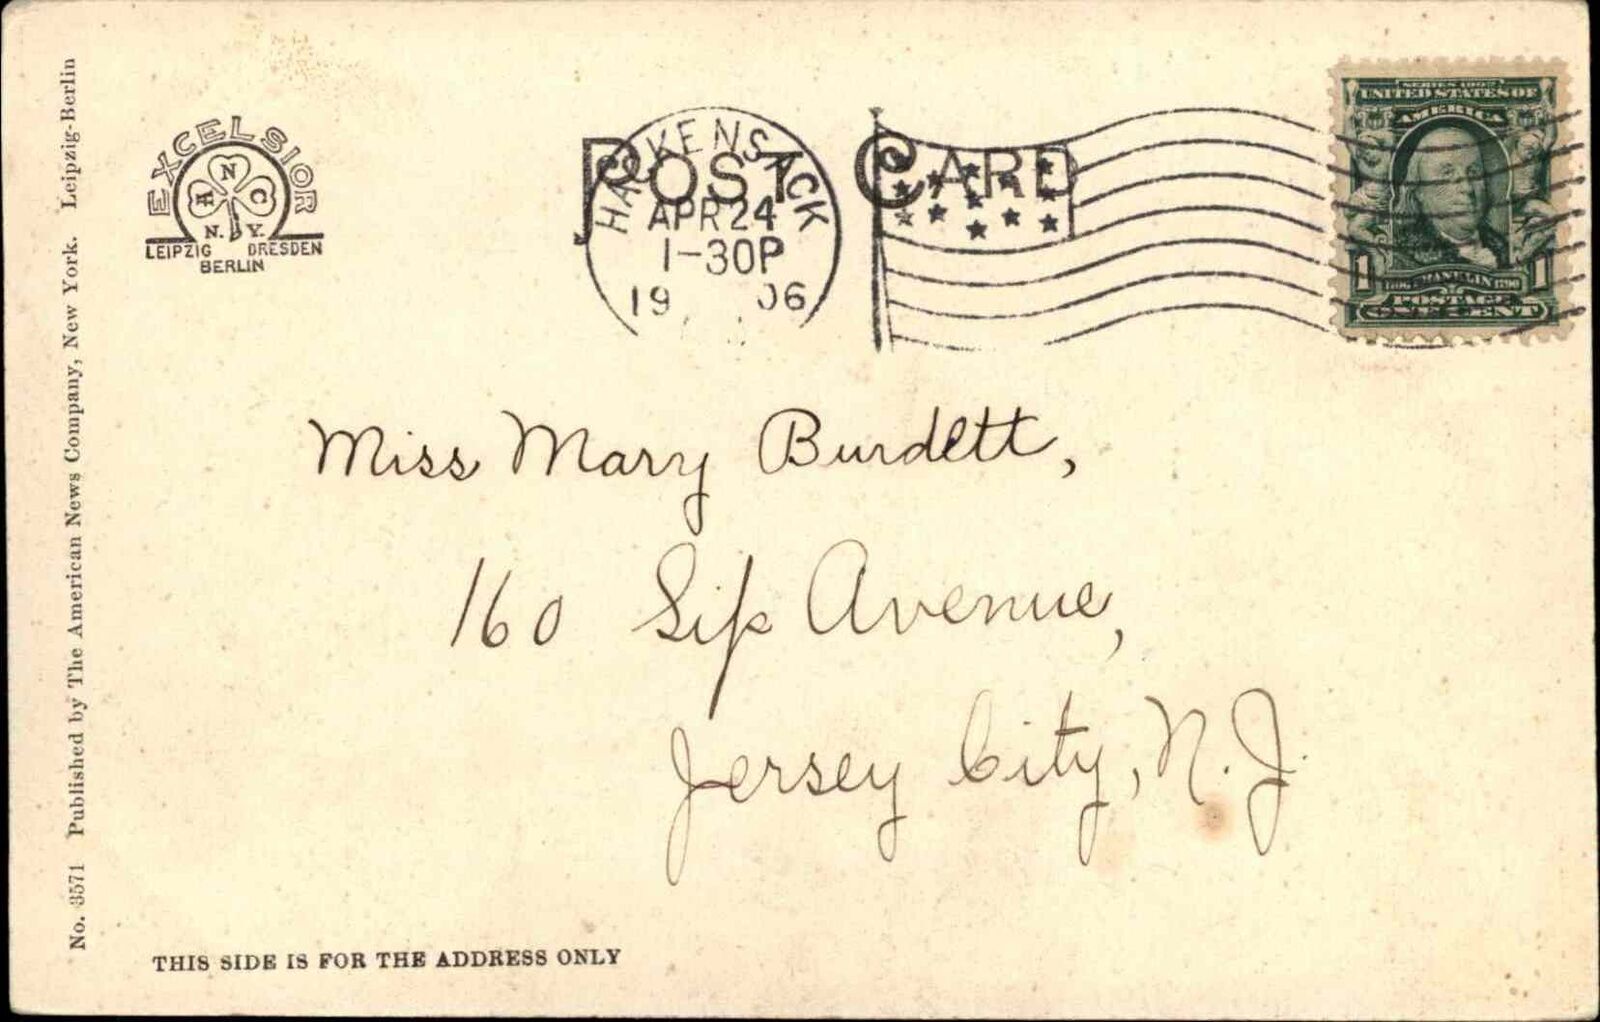 No. 3571 Published by The American News Company, New York. Leipzig-Berlin
EXCELSIOR
A N C
N. Y.
LEIPZIG DRESDEN
BERLIN
POST CARD
HACKENSACK
APR 24
1-30P
19 06
SERIES 1902
UNITED STATES OF
AMERICA
1 1
1706 FRANKLIN 1790
POSTAGE
ONE CENT
Miss Mary Burdett,
160 Sip Avenue,
Jersey City, N.J.
THIS SIDE IS FOR THE ADDRESS ONLY